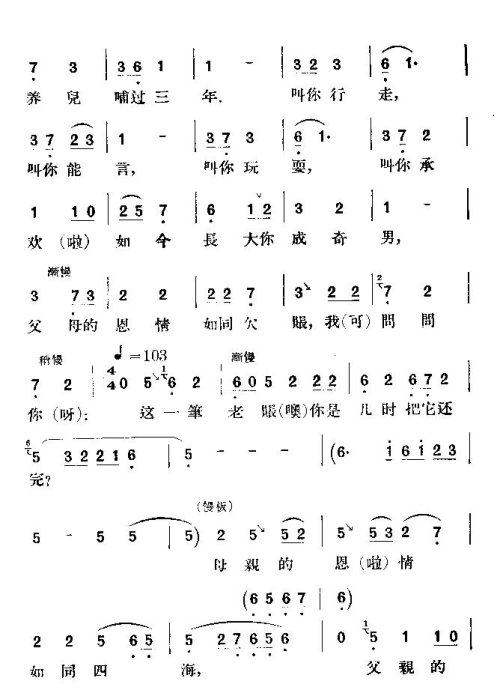 7 3 | 3 6 1 | 1 - | 3 2 3 | 6 1· |
养兒 哺过三 年. 叫你行 走,
3 7 2 3 | 1 - | 3 7 3 | 6 1· | 3 7 2 |
叫你能 言, 叫你玩 耍, 叫你承
1 1 0 | 2 5 7 | 6 1 2 | 3 2 | 1 - |
欢(啦) 如 今 長 大你 成奇 男,
漸慢
3 7 3 | 2 2 | 2 2 7 | 3 2 2 | 2 7 2 |
父 母的 恩 情 如同欠 賬,我(可) 問 問
稍慢 ♩=103 漸慢
7 2 | 4/4 4 0 5 1 6 2 | 6 0 5 2 2 2 2 | 6 2 6 7 2 |
你(呀): 这 一 筆 老 賬(噢)你是 儿 时 把它还
6 5 3 2 2 2 1 6 | 5 - - - | (6· 1 6 1 2 3 |
完?
(慢板)
5 - 5 5 | 5 5) 2 5 5 2 | 5 5 3 2 7 |
母 親 的 恩(啦)情
(6 5 6 7 | 6)
2 2 5 6 5 | 5 2 7 6 5 6 | 0 1 5 1 1 0 |
如 同 四 海, 父 親 的